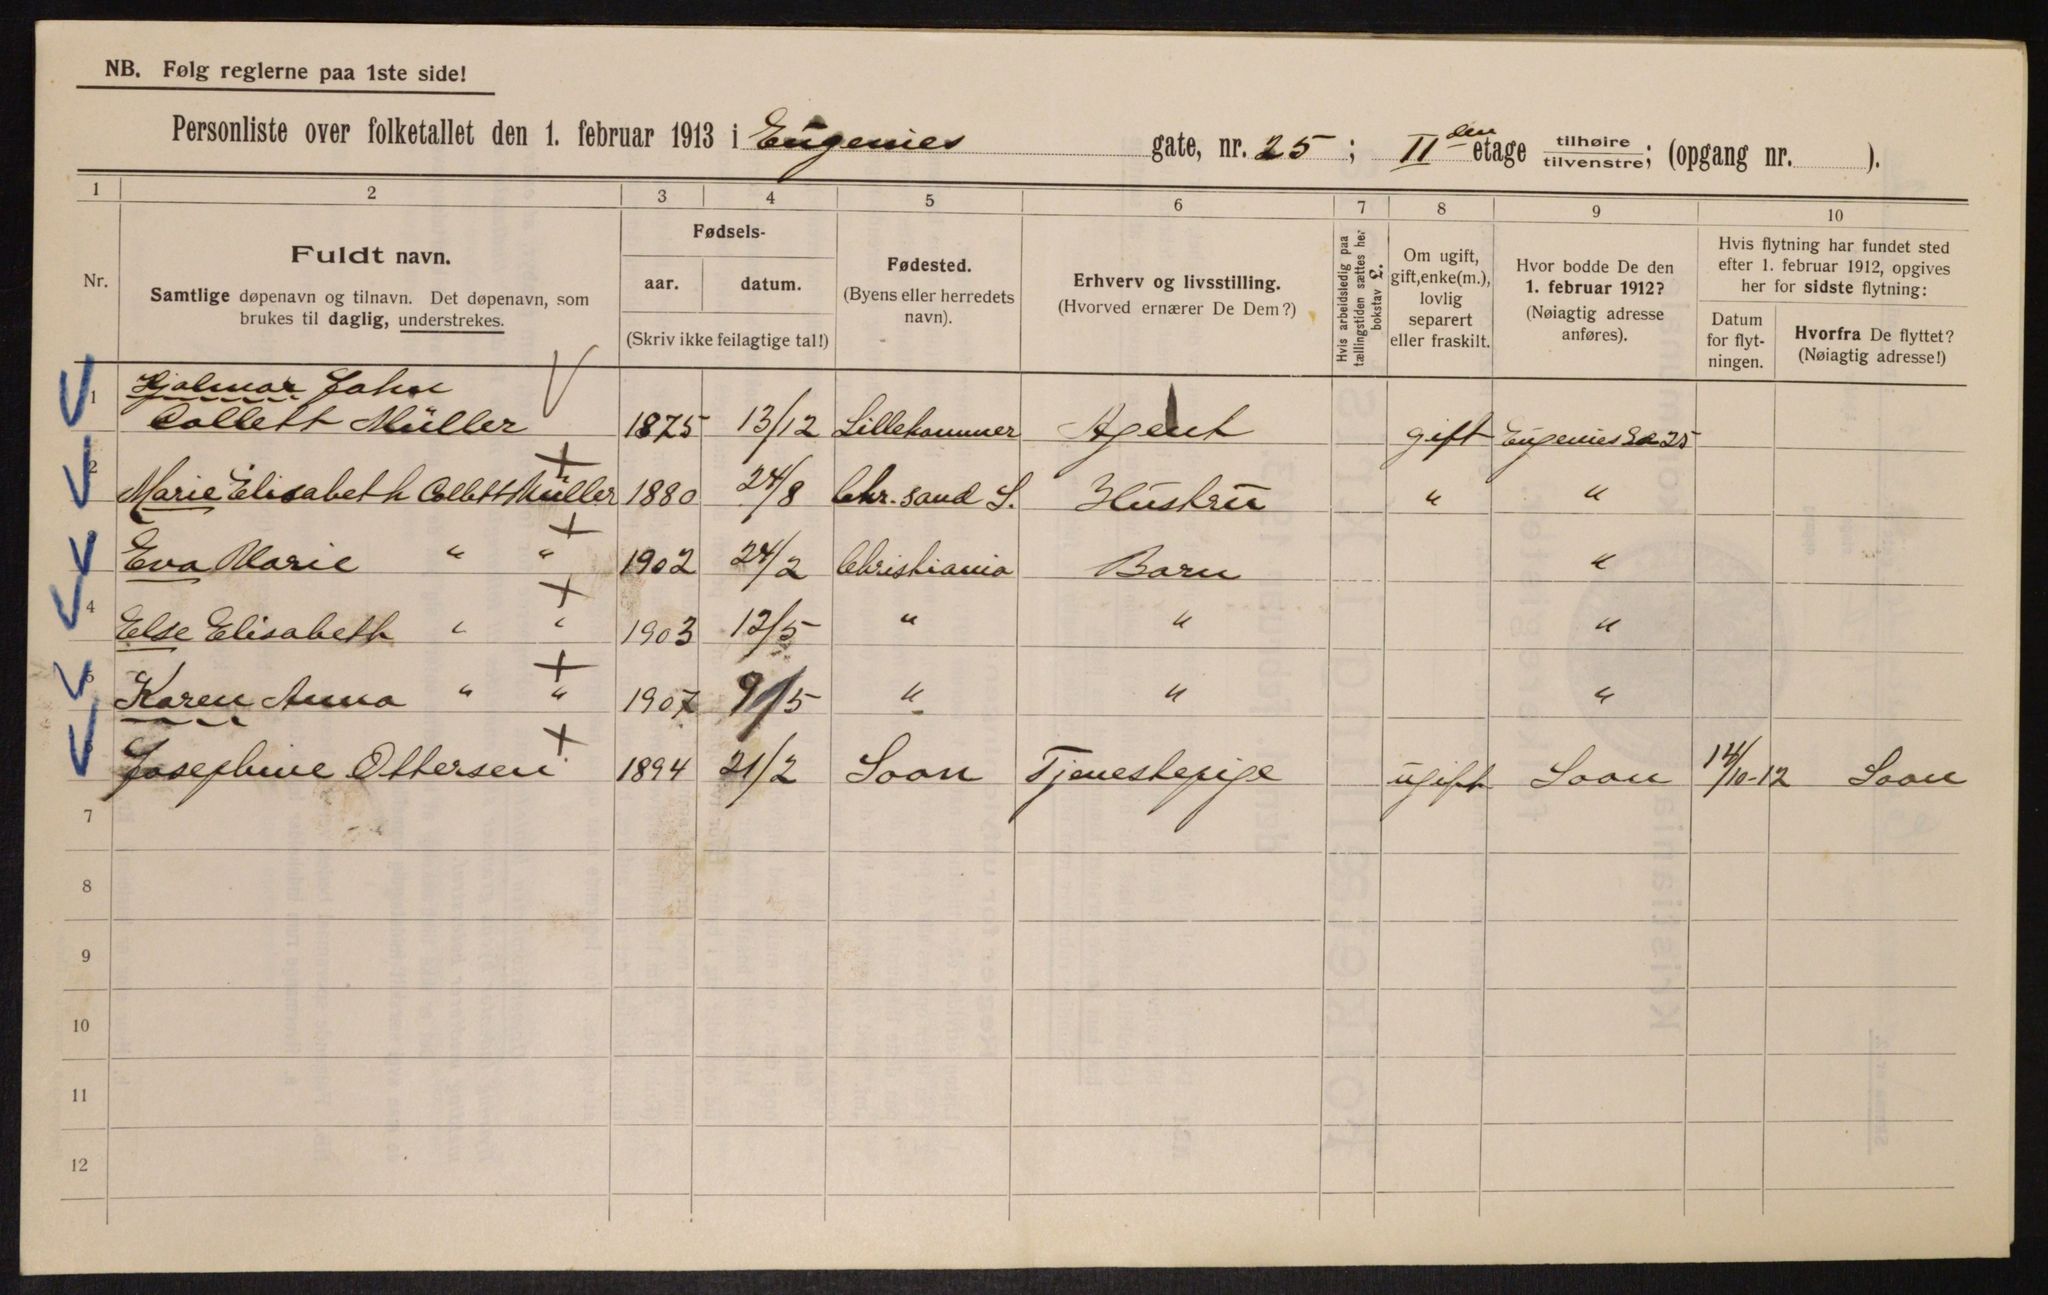 NB. Følg reglerne paa 1ste side!
Personliste over folketallet den 1. februar 1913 i Eugenies gate, nr. 25; II den etage tilhøire tilvenstre; (opgang nr. ).
1 2 3 4 5 6 7 8 9 10
Nr.
Fuldt navn.
Samtlige døpenavn og tilnavn. Det døpenavn, som
brukes til daglig, understrekes.
Fødsels-
aar. datum.
(Skriv ikke feilagtige tal!)
Fødested.
(Byens eller herredets
navn).
Erhverv og livsstilling.
(Hvorved ernærer De Dem?)
Hvis arbeidsledig paa
tællingstiden sættes her
bokstav L.
Om ugift,
gift, enke(m.),
lovlig
separert
eller fraskilt.
Hvor bodde De den
1. februar 1912?
(Nøiagtig adresse
anføres).
Hvis flytning har fundet sted
efter 1. februar 1912, opgives
her for sidste flytning:
Datum
for flyt-
ningen.
Hvorfra De flyttet?
(Nøiagtig adresse!)
1 Hjalmar John
Collett Müller 1875 13/12 Lillehammer Agent gift Eugenies Ga 25
2 Marie Elisabeth Collett Müller 1880 24/8 Chr.sand S. Hustru " "
3 Eva Marie " " 1902 24/2 Christiania Barn "
4 Else Elisabeth " " 1903 12/5 " " "
5 Karen Anna " " 1907 9/5 " " "
6 Josephine Ottersen 1894 21/2 Soon Tjenestepige ugift Soon 14/10-12 Soon
7
8
9
10
11
12